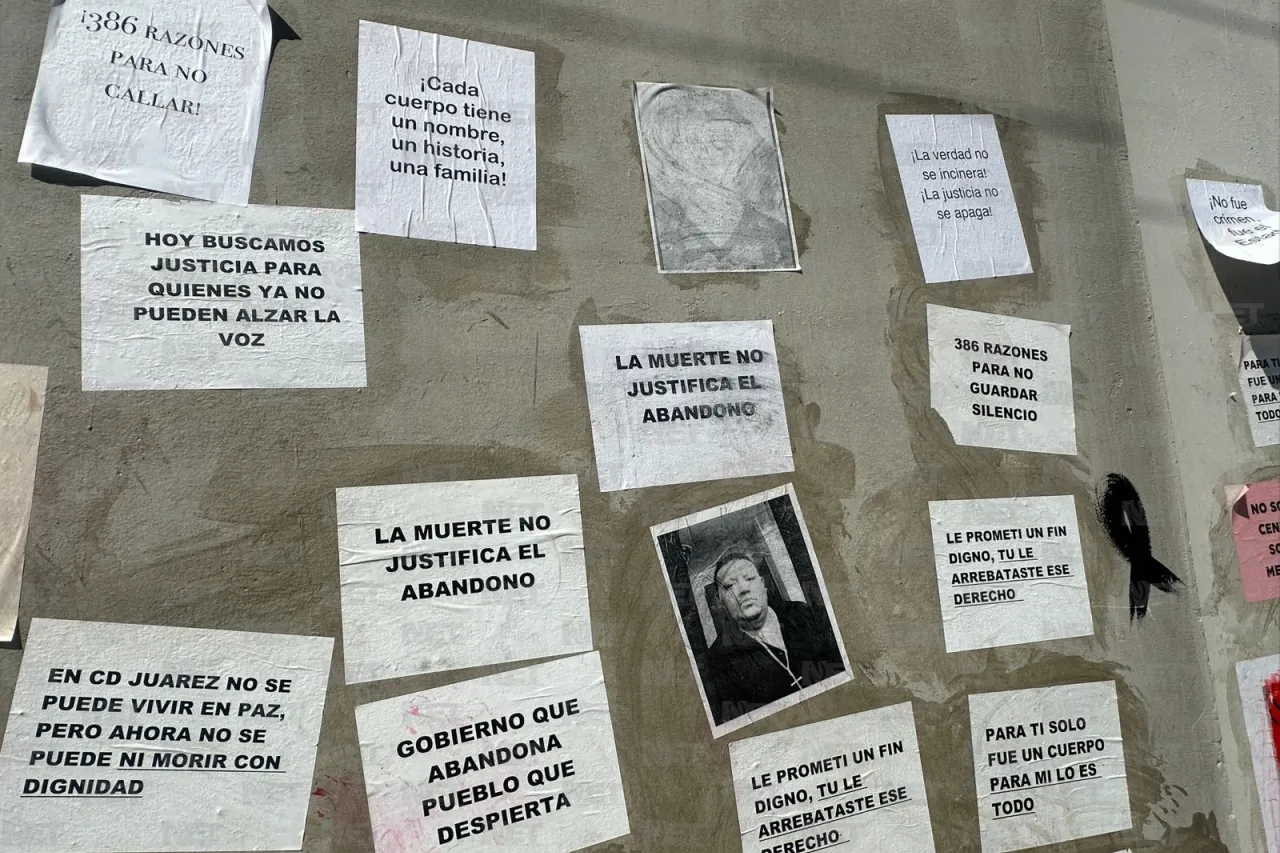 ¡386 RAZONES
PARA NO
CALLAR!
¡Cada
cuerpo tiene
un nombre,
un historia,
una familia!
¡La verdad no
se incinera!
¡La justicia no
se apaga!
¡No fue
crimen,
fue el
HOY BUSCAMOS
JUSTICIA PARA
QUIENES YA NO
PUEDEN ALZAR LA
VOZ
LA MUERTE NO
JUSTIFICA EL
ABANDONO
386 RAZONES
PARA NO
GUARDAR
SILENCIO
PARA TI
FUE UN
PARA
TODO
LA MUERTE NO
JUSTIFICA EL
ABANDONO
LE PROMETI UN FIN
DIGNO, TU LE
ARREBATASTE ESE
DERECHO
NO SO
CEN
SO
ME
EN CD JUAREZ NO SE
PUEDE VIVIR EN PAZ,
PERO AHORA NO SE
PUEDE NI MORIR CON
DIGNIDAD
GOBIERNO QUE
ABANDONA
PUEBLO QUE
DESPIERTA
LE PROMETI UN FIN
DIGNO, TU LE
ARREBATASTE ESE
DERECHO
PARA TI SOLO
FUE UN CUERPO
PARA MI LO ES
TODO